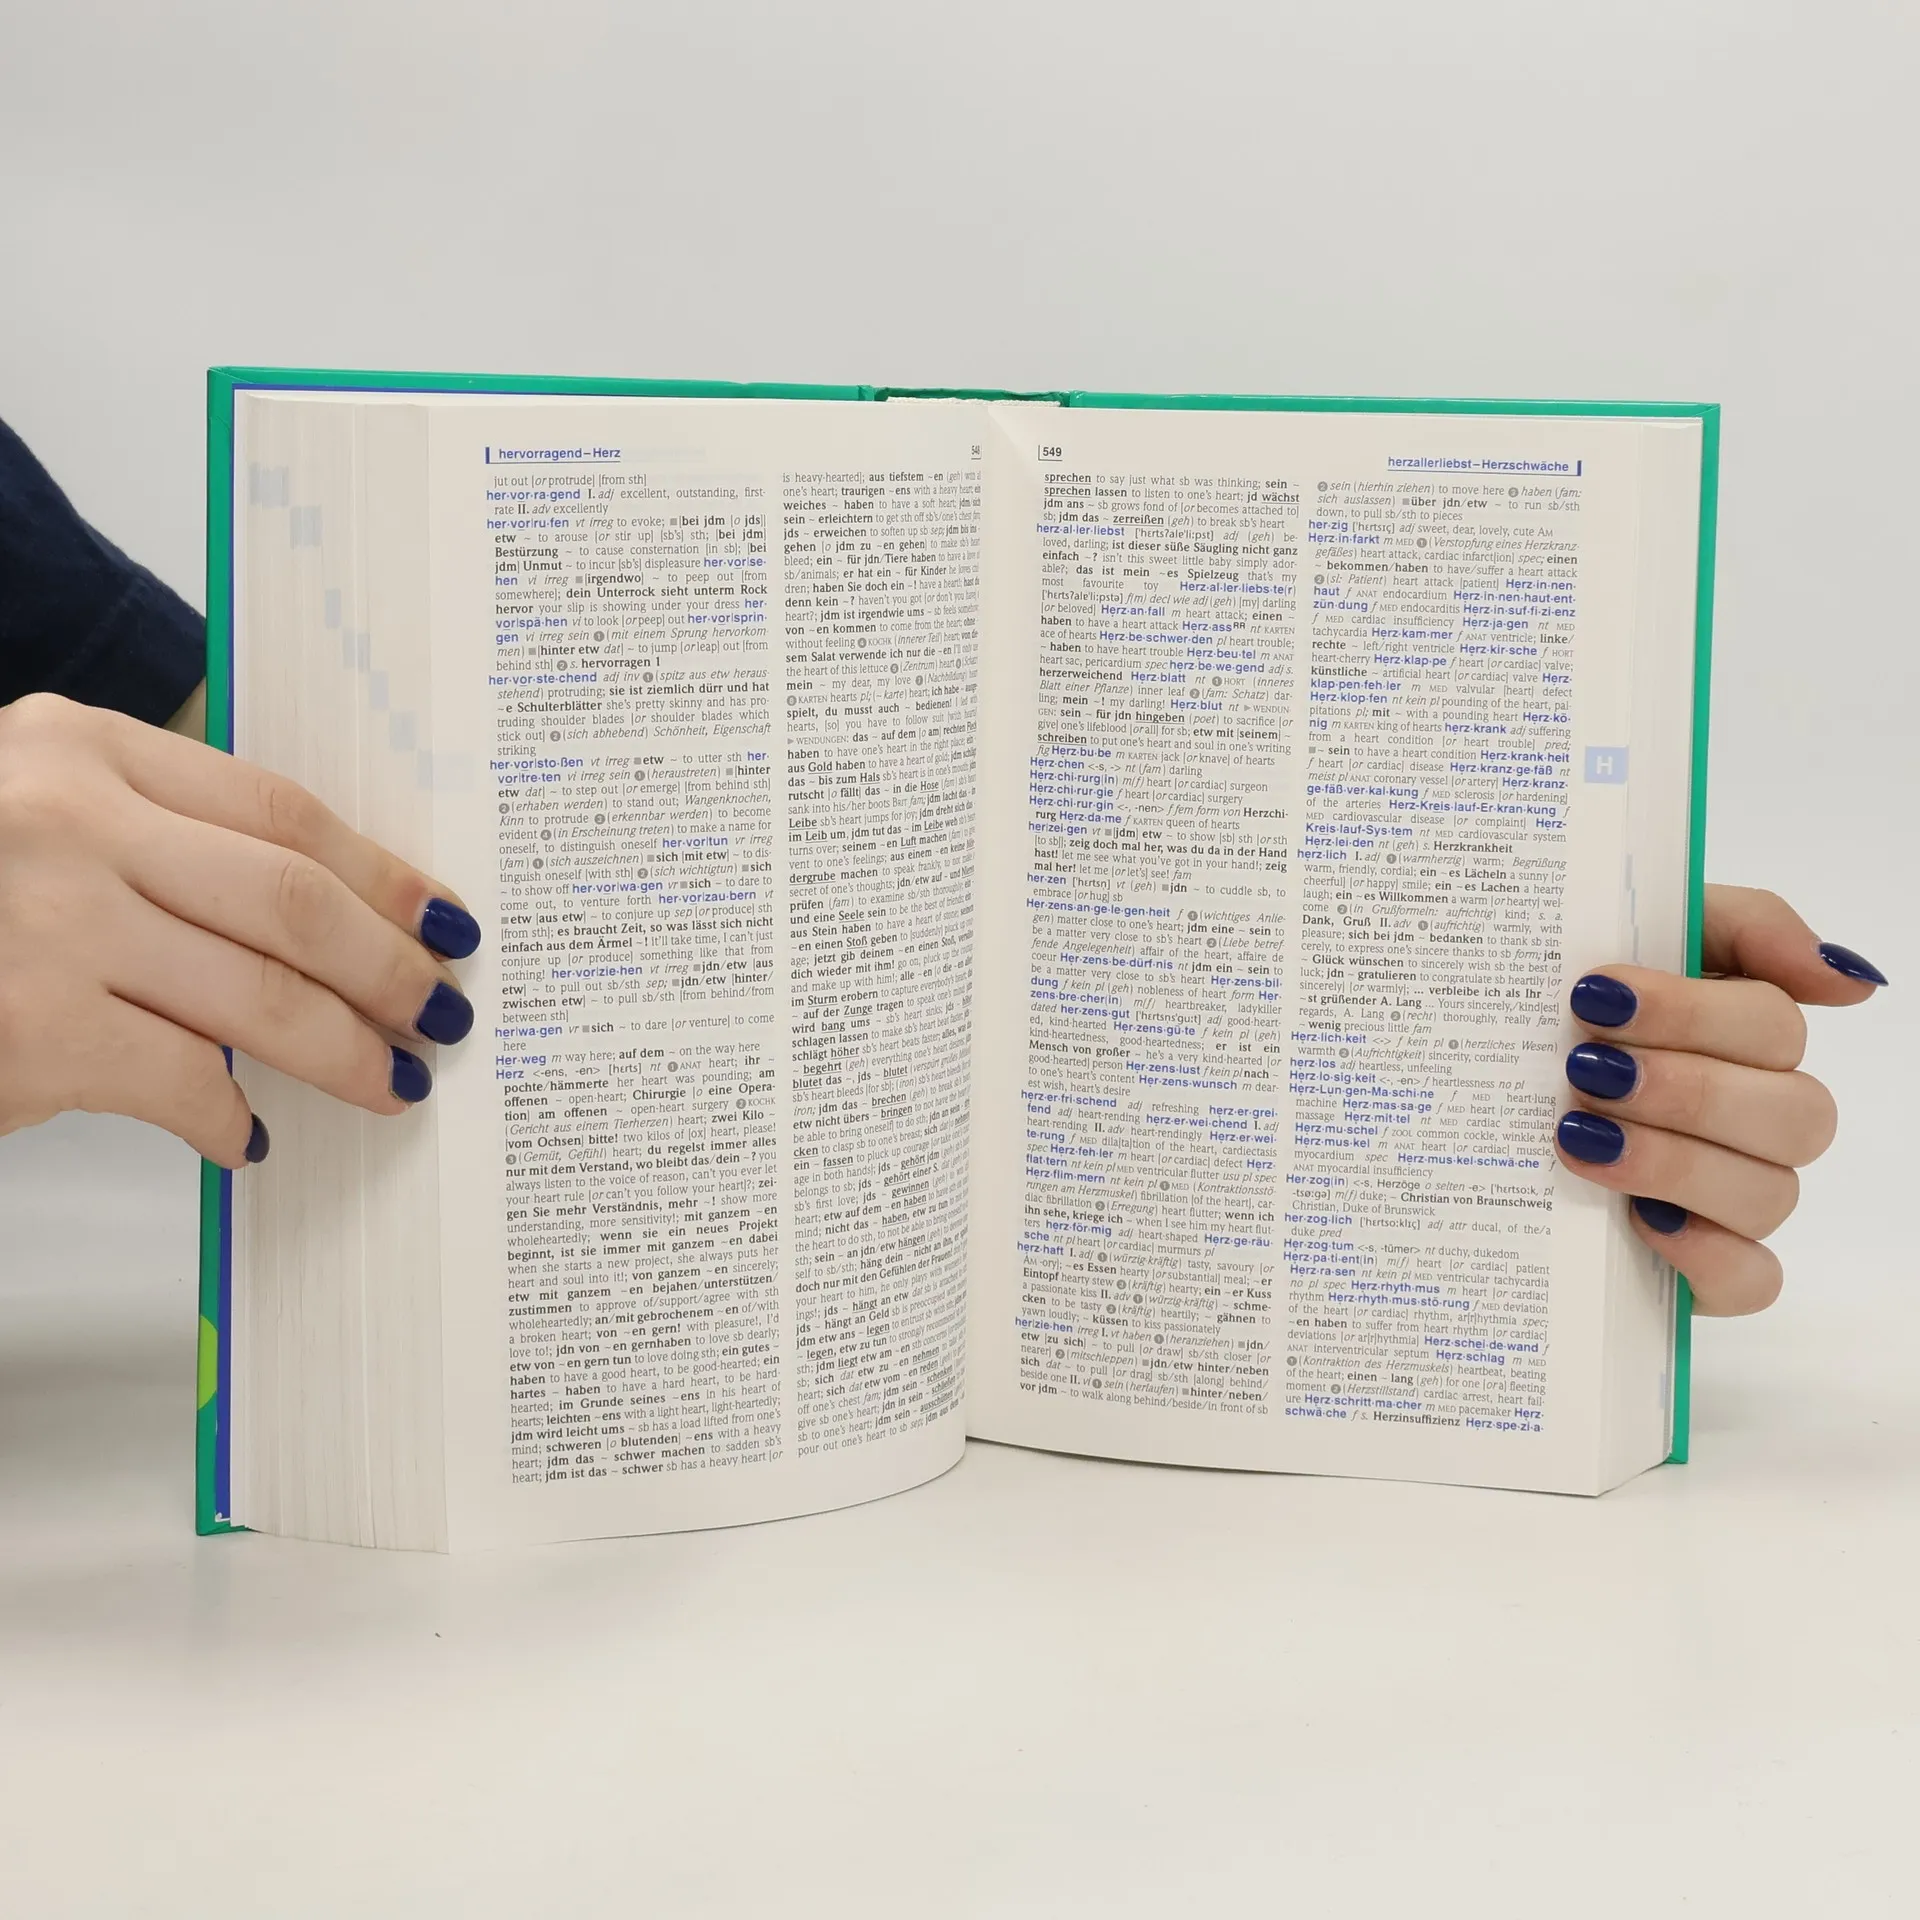 hervorragend–Herz
548
jut out [or protrude] [from sth]
her·vor·ra·gend I. adj excellent, outstanding, first-
rate II. adv excellently
her·vor|ru·fen vt irreg to evoke; ■[bei jdm [o jds]]
etw ~ to arouse [or stir up] [sb's] sth; [bei jdm]
Bestürzung ~ to cause consternation [in sb]; [bei
jdm] Unmut ~ to incur [sb's] displeasure her·vor|se-
hen vi irreg ■[irgendwo] ~ to peep out [from
somewhere]; dein Unterrock sieht unterm Rock
hervor your slip is showing under your dress her-
vor|spä·hen vi to look [or peep] out her·vor|sprin-
gen vi irreg sein ❶ (mit einem Sprung hervorkom
men) ■[hinter etw dat] ~ to jump [or leap] out [from
behind sth] ❷ s. hervorragen 1
her·vor·ste·chend adj inv ❶ (spitz aus etw heraus-
stehend) protruding; sie ist ziemlich dürr und hat
~e Schulterblätter she's pretty skinny and has pro-
truding shoulder blades [or shoulder blades which
stick out] ❷ (sich abhebend) Schönheit, Eigenschaft
striking
her·vor|sto·ßen vt irreg ■etw ~ to utter sth her-
vor|tre·ten vi irreg sein ❶ (heraustreten) ■[hinter
etw dat] ~ to step out [or emerge] [from behind sth]
❷ (erhaben werden) to stand out; Wangenknochen,
Kinn to protrude ❸ (erkennbar werden) to become
evident ❹ (in Erscheinung treten) to make a name for
oneself, to distinguish oneself her·vor|tun vr irreg
(fam) ❶ (sich auszeichnen) ■sich [mit etw] ~ to dis-
tinguish oneself [with sth] ❷ (sich wichtigtun) ■sich
~ to show off her·vor|wa·gen vr ■sich ~ to dare to
come out, to venture forth her·vor|zau·bern vt
■etw [aus etw] ~ to conjure up sep [or produce] sth
[from sth]; es braucht Zeit, so was lässt sich nicht
einfach aus dem Ärmel ~! it'll take time, I can't just
conjure up [or produce] something like that from
nothing! her·vor|zie·hen vt irreg ■jdn/etw [aus
etw] ~ to pull out sb/sth sep; ■jdn/etw [hinter/
zwischen etw] ~ to pull sb/sth [from behind/from
between sth]
her|wa·gen vr ■sich ~ to dare [or venture] to come
here
Her·weg m way here; auf dem ~ on the way here
Herz <-ens, -en> [hɛrts] nt ❶ ANAT heart; ihr ~
pochte/hämmerte her heart was pounding; am
offenen ~ open-heart; Chirurgie [o eine Opera-
tion] am offenen ~ open-heart surgery ❷ KOCHK
(Gericht aus einem Tierherzen) heart; zwei Kilo ~
[vom Ochsen] bitte! two kilos of [ox] heart, please!
❸ (Gemüt, Gefühl) heart; du regelst immer alles
nur mit dem Verstand, wo bleibt das/dein ~? you
always listen to the voice of reason, can't you ever let
your heart rule [or can't you follow your heart]?; zei-
gen Sie mehr Verständnis, mehr ~! show more
understanding, more sensitivity!; mit ganzem ~en
wholeheartedly; wenn sie ein neues Projekt
beginnt, ist sie immer mit ganzem ~en dabei
when she starts a new project, she always puts her
heart and soul into it!; von ganzem ~en sincerely;
etw mit ganzem ~en bejahen/unterstützen/
zustimmen to approve of/support/agree with sth
wholeheartedly; an/mit gebrochenem ~en of/with
a broken heart; von ~en gern! with pleasure!, I'd
love to!; jdn von ~en gernhaben to love sb dearly;
etw von ~en gern tun to love doing sth; ein gutes ~
haben to have a good heart, to be good-hearted; ein
hartes ~ haben to have a hard heart, to be hard-
hearted; im Grunde seines ~ens in his heart of
hearts; leichten ~ens with a light heart, light-heartedly;
jdm wird leicht ums ~ sb has a load lifted from one's
mind; schweren [o blutenden] ~ens with a heavy
heart; jdm das ~ schwer machen to sadden sb's
heart; jdm ist das ~ schwer sb has a heavy heart [or
is heavy-hearted]; aus tiefstem ~en (geh) with all
one's heart; traurigen ~ens with a heavy heart; ein
weiches ~ haben to have a soft heart; jdm
sein ~ erleichtern to get sth off sb's/one's chest fam;
jds ~ erweichen to soften up sb sep; jdm bis ins ~
gehen [o jdm zu ~en gehen] to make sb's heart
bleed; ein ~ für jdn/Tiere haben to have a love of
sb/animals; er hat ein ~ für Kinder he loves chil-
dren; haben Sie doch ein ~! have a heart!; hast du
denn kein ~? haven't you got [or don't you have] a
heart?; jdm ist irgendwie ums ~ sb feels somehow;
von ~en kommen to come from the heart; ohne ~
without feeling ❹ KOCHK (innerer Teil) heart; von die-
sem Salat verwende ich nur die ~en I'll only use
the heart of this lettuce ❺ (Zentrum) heart ❻ (Schatz)
mein ~ my dear, my love ❼ (Nachbildung) heart
❽ KARTEN hearts pl; (~karte) heart; ich habe ~ ausge-
spielt, du musst auch ~ bedienen! I led with
hearts, [so] you have to follow suit [with hearts]
▶ WENDUNGEN: das ~ auf dem [o am] rechten Fleck
haben to have one's heart in the right place; ein ~
aus Gold haben to have a heart of gold; jdm schlägt
das ~ bis zum Hals sb's heart is in one's mouth; jdm
rutscht [o fällt] das ~ in die Hose (fam) sb's heart
sank into his/her boots BRIT fam; jdm lacht das ~ im
Leibe sb's heart jumps for joy; jdm dreht sich das ~
im Leib um, jdm tut das ~ im Leibe weh sb's heart
turns over; seinem ~en Luft machen (fam) to give
vent to one's feelings; aus einem ~en keine Mör-
dergrube machen to speak frankly, to not make a
secret of one's thoughts; jdn/etw auf ~ und Nieren
prüfen (fam) to examine sb/sth thoroughly; ein ~
und eine Seele sein to be the best of friends; ein ~
aus Stein haben to have a heart of stone; seinem
~en einen Stoß geben to [suddenly] pluck up cour-
age; jetzt gib deinem ~en einen Stoß, versöhn
dich wieder mit ihm! go on, pluck up the courage
and make up with him!; alle ~en [o die ~en aller]
im Sturm erobern to capture everybody's heart; das
~ auf der Zunge tragen to speak one's mind; jdm
wird bang ums ~ sb's heart sinks; jds ~ höher
schlagen lassen to make sb's heart beat faster; jds ~
schlägt höher sb's heart beats faster; alles, was das
~ begehrt (geh) everything one's heart desires; jdm
blutet das ~, jds ~ blutet (verspürt großes Mitleid)
sb's heart bleeds [for sb]; (iron) sb's heart bleeds
iron; jdm das ~ brechen (geh) to break sb's heart;
etw nicht übers ~ bringen to not have the heart to
be able to bring oneself] to do sth; jdn an sein ~ drü-
cken to clasp sb to one's breast; sich dat ein
~ fassen to pluck up courage [or take one's cour-
age in both hands]; jds ~ gehört jdm (geh) sb's heart
belongs to sb; jds ~ gehört einer S. dat (geh) sth is
sb's first love; jds ~ gewinnen (geh) to win sb's
heart; etw auf dem ~en haben to have sth on one's
mind; nicht das ~ haben, etw zu tun to not have
the heart to do sth, to not be able to bring oneself to do
sth; sein ~ an jdn/etw hängen (geh) to devote one-
self to sb/sth; häng dein ~ nicht an ihn, er spielt
doch nur mit den Gefühlen der Frauen! don't give
your heart to him, he only plays with women's feel-
ings!; jds ~ hängt an etw dat sb is attached to sth;
jds ~ hängt an Geld sb is preoccupied with money;
jdm etw ans ~ legen to entrust sb with sth; jdm ans
~ legen, etw zu tun to strongly recommend sb to do
sth; jdm liegt etw am ~en sb is concerned about sth;
sb; sich dat etw zu ~en nehmen to take sth to
heart; sich dat etw vom ~en reden (geh) to get sth
off one's chest fam; jdm sein ~ schenken (geh) to
give sb one's heart; jdn in sein ~ schließen (geh) to take
sb to one's heart; jdm sein ~ ausschütten (geh) to
pour out one's heart to sb sep; jdm aus dem ~
549
herzallerliebst–Herzschwäche
sprechen to say just what sb was thinking; sein ~
sprechen lassen to listen to one's heart; jd wächst
jdm ans ~ sb grows fond of [or becomes attached to]
sb; jdm das ~ zerreißen (geh) to break sb's heart
herz·al·ler·liebst ['hɛrtsʔalɐ'li:pst] adj (geh) be-
loved, darling; ist dieser süße Säugling nicht ganz
einfach ~? isn't this sweet little baby simply ador-
able?; das ist mein ~es Spielzeug that's my
most favourite toy Herz·al·ler·liebs·te(r)
['hɛrtsʔalɐ'li:pstə] f(m) decl wie adj (geh) [my] darling
[or beloved] Herz·an·fall m heart attack; einen ~
haben to have a heart attack Herz·assᴿᴿ nt KARTEN
ace of hearts Herz·be·schwer·den pl heart trouble;
~ haben to have heart trouble Herz·beu·tel m ANAT
heart sac, pericardium spec herz·be·we·gend adj s.
herzerweichend Herz·blatt nt ❶ HORT (inneres
Blatt einer Pflanze) inner leaf ❷ (fam: Schatz) dar-
ling; mein ~! my darling! Herz·blut nt ▶ WENDUN-
GEN: sein ~ für jdn hingeben (poet) to sacrifice [or
give] one's lifeblood [or all] for sb; etw mit [seinem] ~
schreiben to put one's heart and soul in one's writing
fig Herz·bu·be m KARTEN jack [or knave] of hearts
Herz·chen <-s, -> nt (fam) darling
Herz·chi·rurg(in) m(f) heart [or cardiac] surgeon
Herz·chi·rur·gie f heart [or cardiac] surgery
Herz·chi·rur·gin <-, -nen> f fem form von Herzchi-
rurg Herz·da·me f KARTEN queen of hearts
her|zei·gen vt ■[jdm] etw ~ to show [sb] sth [or sth
[to sb]]; zeig doch mal her, was du da in der Hand
hast! let me see what you've got in your hand!; zeig
mal her! let me [or let's] see! fam
her·zen ['hɛrtsn̩] vt (geh) ■jdn ~ to cuddle sb, to
embrace [or hug] sb
Her·zens·an·ge·le·gen·heit f ❶ (wichtiges Anlie-
gen) matter close to one's heart; jdm eine ~ sein to
be a matter very close to sb's heart ❷ (Liebe betref-
fende Angelegenheit) affair of the heart, affaire de
coeur Her·zens·be·dürf·nis nt jdm ein ~ sein to
be a matter very close to sb's heart Her·zens·bil-
dung f kein pl (geh) nobleness of heart form Her-
zens·bre·cher(in) m(f) heartbreaker, ladykiller
dated her·zens·gut ['hɛrtsn̩s'gu:t] adj good-heart-
ed, kind-hearted Her·zens·gü·te f kein pl (geh)
kind-heartedness, good-heartedness; er ist ein
Mensch von großer ~ he's a very kind-hearted [or
good-hearted] person Her·zens·lust f kein pl nach ~
to one's heart's content Her·zens·wunsch m dear-
est wish, heart's desire
herz·er·fri·schend adj refreshing herz·er·grei-
fend adj heart-rending herz·er·wei·chend I. adj
heart-rending II. adv heart-rendingly Herz·er·wei-
te·rung f MED dila[ta]tion of the heart, cardiectasis
spec Herz·feh·ler m heart [or cardiac] defect Herz-
flat·tern nt kein pl MED ventricular flutter usu pl spec
Herz·flim·mern nt kein pl ❶ MED (Kontraktionsstö-
rungen am Herzmuskel) fibrillation [of the heart], car-
diac fibrillation ❷ (Erregung) heart flutter; wenn ich
ihn sehe, kriege ich ~ when I see him my heart flut-
ters herz·för·mig adj heart-shaped Herz·ge·räu-
sche nt pl heart [or cardiac] murmurs pl
herz·haft I. adj ❶ (würzig-kräftig) tasty, savoury [or
AM -ory]; ~es Essen hearty [or substantial] meal; ~er
Eintopf hearty stew ❷ (kräftig) hearty; ein ~er Kuss
a passionate kiss II. adv ❶ (würzig-kräftig) ~ schme-
cken to be tasty ❷ (kräftig) heartily; ~ gähnen to
yawn loudly; ~ küssen to kiss passionately
her|zie·hen irreg I. vt haben ❶ (heranziehen) ■jdn/
etw [zu sich] ~ to pull [or draw] sb/sth closer [or
nearer] ❷ (mitschleppen) ■jdn/etw hinter/neben
sich dat ~ to pull [or drag] sb/sth [along] behind/
beside one II. vi ❶ sein (herlaufen) ■hinter/neben/
vor jdm ~ to walk along behind/beside/in front of sb
❷ sein (hierhin ziehen) to move here ❸ haben (fam:
sich auslassen) ■über jdn/etw ~ to run sb/sth
down, to pull sb/sth to pieces
her·zig ['hɛrtsɪç] adj sweet, dear, lovely, cute AM
Herz·in·farkt m MED ❶ (Verstopfung eines Herzkranz-
gefäßes) heart attack, cardiac infarct[ion] spec; einen
~ bekommen/haben to have/suffer a heart attack
❷ (sl: Patient) heart attack [patient] Herz·in·nen-
haut f ANAT endocardium Herz·in·nen·haut·ent-
zün·dung f MED endocarditis Herz·in·suf·fi·zi·enz
f MED cardiac insufficiency Herz·ja·gen nt MED
tachycardia Herz·kam·mer f ANAT ventricle; linke/
rechte ~ left/right ventricle Herz·kir·sche f HORT
heart-cherry Herz·klap·pe f heart [or cardiac] valve;
künstliche ~ artificial heart [or cardiac] valve Herz-
klap·pen·feh·ler m MED valvular [heart] defect
Herz·klop·fen nt kein pl pounding of the heart, pal-
pitations pl; mit ~ with a pounding heart Herz·kö-
nig m KARTEN king of hearts herz·krank adj suffering
from a heart condition [or heart trouble] pred;
■~ sein to have a heart condition Herz·krank·heit
f heart [or cardiac] disease Herz·kranz·ge·fäß nt
meist pl ANAT coronary vessel [or artery] Herz·kranz-
ge·fäß·ver·kal·kung f MED sclerosis [or hardening]
of the arteries Herz-Kreis·lauf-Er·kran·kung f
MED cardiovascular disease [or complaint] Herz-
Kreis·lauf-Sys·tem nt MED cardiovascular system
Herz·lei·den nt (geh) s. Herzkrankheit
herz·lich I. adj ❶ (warmherzig) warm; Begrüßung
warm, friendly, cordial; ein ~es Lächeln a sunny [or
cheerful] [or happy] smile; ein ~es Lachen a hearty
laugh; ein ~es Willkommen a warm [or hearty] wel-
come ❷ (in Grußformeln: aufrichtig) kind; s. a.
Dank, Gruß II. adv ❶ (aufrichtig) warmly, with
pleasure; sich bei jdm ~ bedanken to thank sb sin-
cerely, to express one's sincere thanks to sb form; jdn
~ Glück wünschen to sincerely wish sb the best of
luck; jdn ~ gratulieren to congratulate sb heartily [or
sincerely] [or warmly]; ... verbleibe ich als Ihr ~/
~st grüßender A. Lang ... Yours sincerely,/kind[est]
regards, A. Lang ❷ (recht) thoroughly, really fam;
~ wenig precious little fam
Herz·lich·keit <-> f kein pl ❶ (herzliches Wesen)
warmth ❷ (Aufrichtigkeit) sincerity, cordiality
herz·los adj heartless, unfeeling
Herz·lo·sig·keit <-, -en> f heartlessness no pl
Herz-Lun·gen-Ma·schi·ne f MED heart-lung
machine Herz·mas·sa·ge f MED heart [or cardiac]
massage Herz·mit·tel nt MED cardiac stimulant
Herz·mu·schel f ZOOL common cockle, winkle AM
Herz·mus·kel m ANAT heart [or cardiac] muscle,
myocardium spec Herz·mus·kel·schwä·che f
ANAT myocardial insufficiency
Her·zog(in) <-s, Herzöge o selten -e> ['hɛrtso:k, pl
-tsø:gə] m(f) duke; ~ Christian von Braunschweig
Christian, Duke of Brunswick
her·zog·lich ['hɛrtso:klɪç] adj attr ducal, of the/a
duke pred
Her·zog·tum <-s, -tümer> nt duchy, dukedom
Herz·pa·ti·ent(in) m(f) heart [or cardiac] patient
Herz·ra·sen nt kein pl MED ventricular tachycardia
no pl spec Herz·rhyth·mus m heart [or cardiac]
rhythm Herz·rhyth·mus·stö·rung f MED deviation
of the heart [or cardiac] rhythm, arrhythmia spec;
~en haben to suffer from heart rhythm [or cardiac]
deviations [or ar[r]hythmia] Herz·schei·de·wand f
ANAT interventricular septum Herz·schlag m MED
❶ (Kontraktion des Herzmuskels) heartbeat, beating
of the heart; einen ~ lang (geh) for one [or a] fleeting
moment ❷ (Herzstillstand) cardiac arrest, heart fail-
ure Herz·schritt·ma·cher m MED pacemaker Herz-
schwä·che f s. Herzinsuffizienz Herz·spe·zi·a-
H